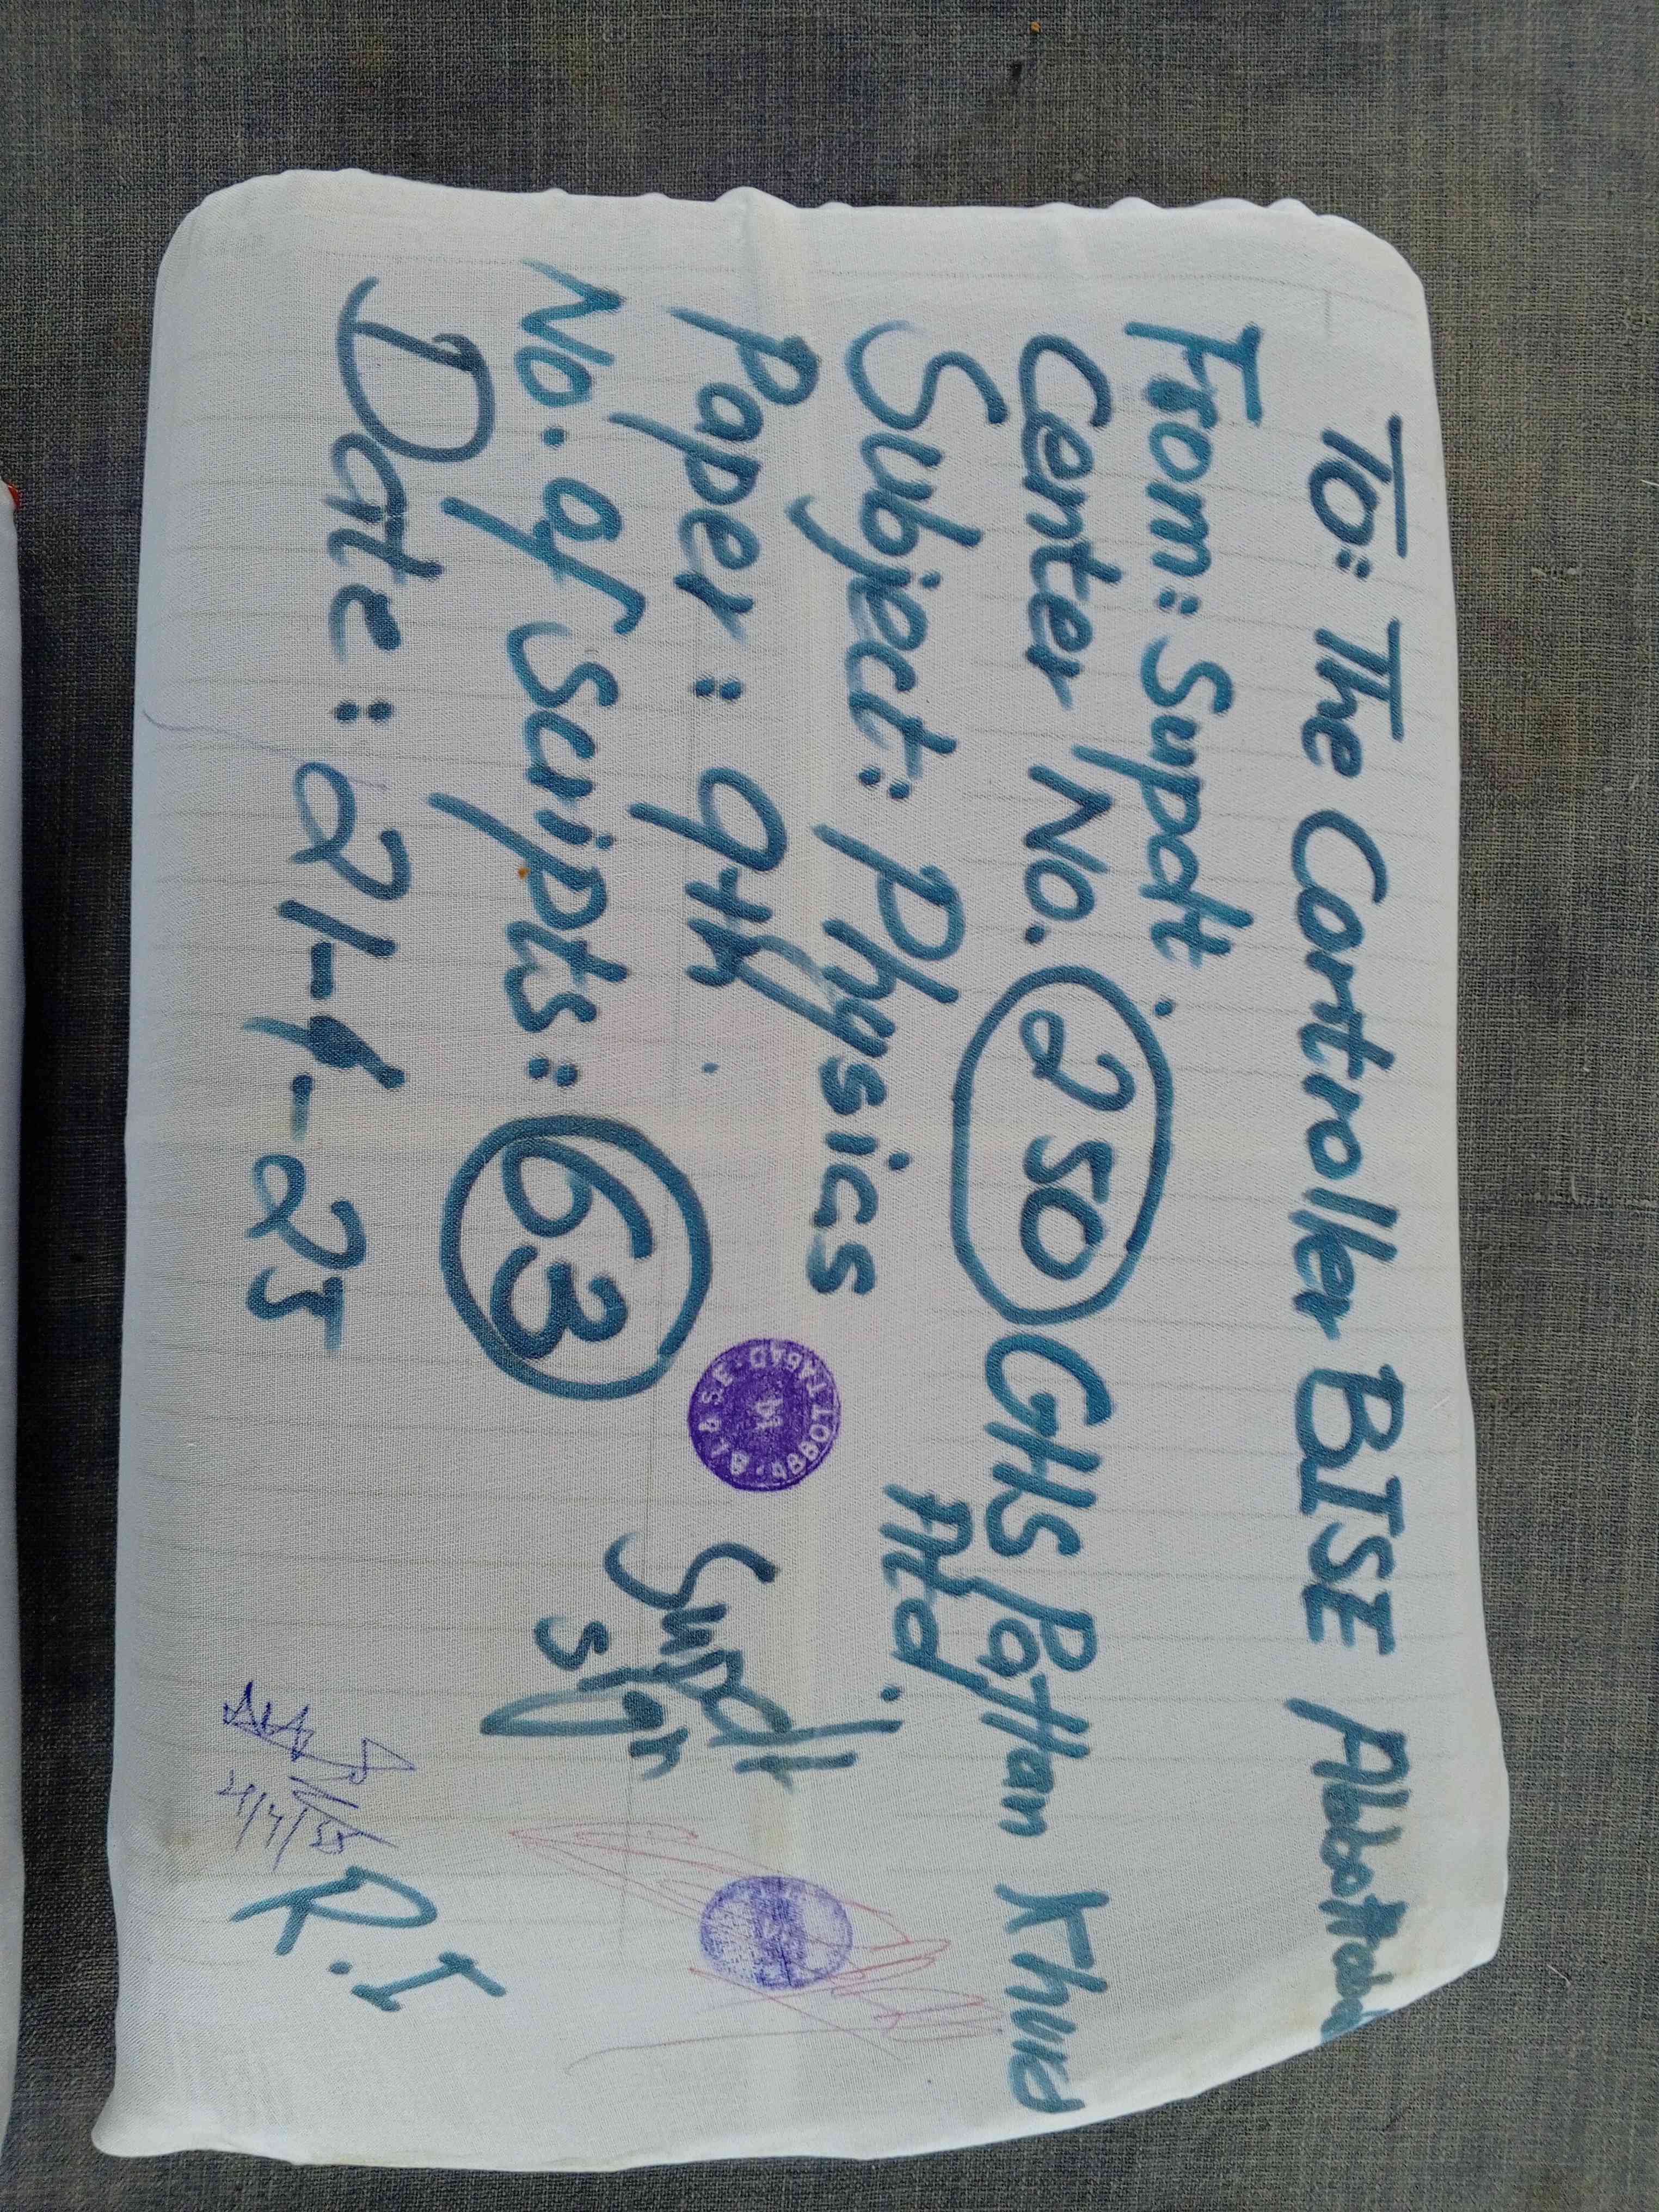 To: The Controller BISE Abbottabad
From: Supdt.
Center No. 250 GHS Pattan Khurd
Atd.
Subject: Physics
Paper: 9th
No. of scripts: 63
Date: 21-4-25
B.I.S.E. ABBOTTABAD
Supdt
sign
21/4/25
R.I